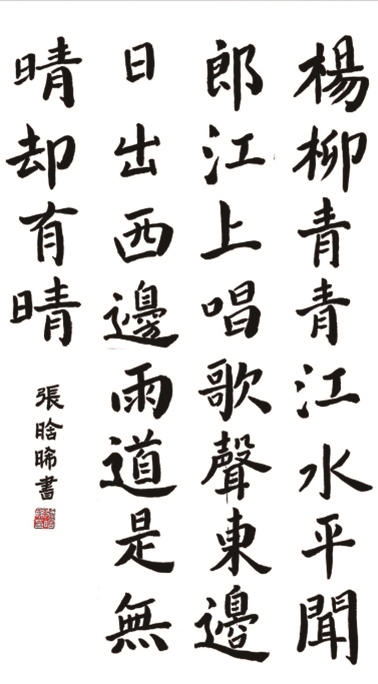 楊柳青青江水平聞
郎江上唱歌聲東邊
日出西邊雨道是無
晴却有晴
張晗晞書